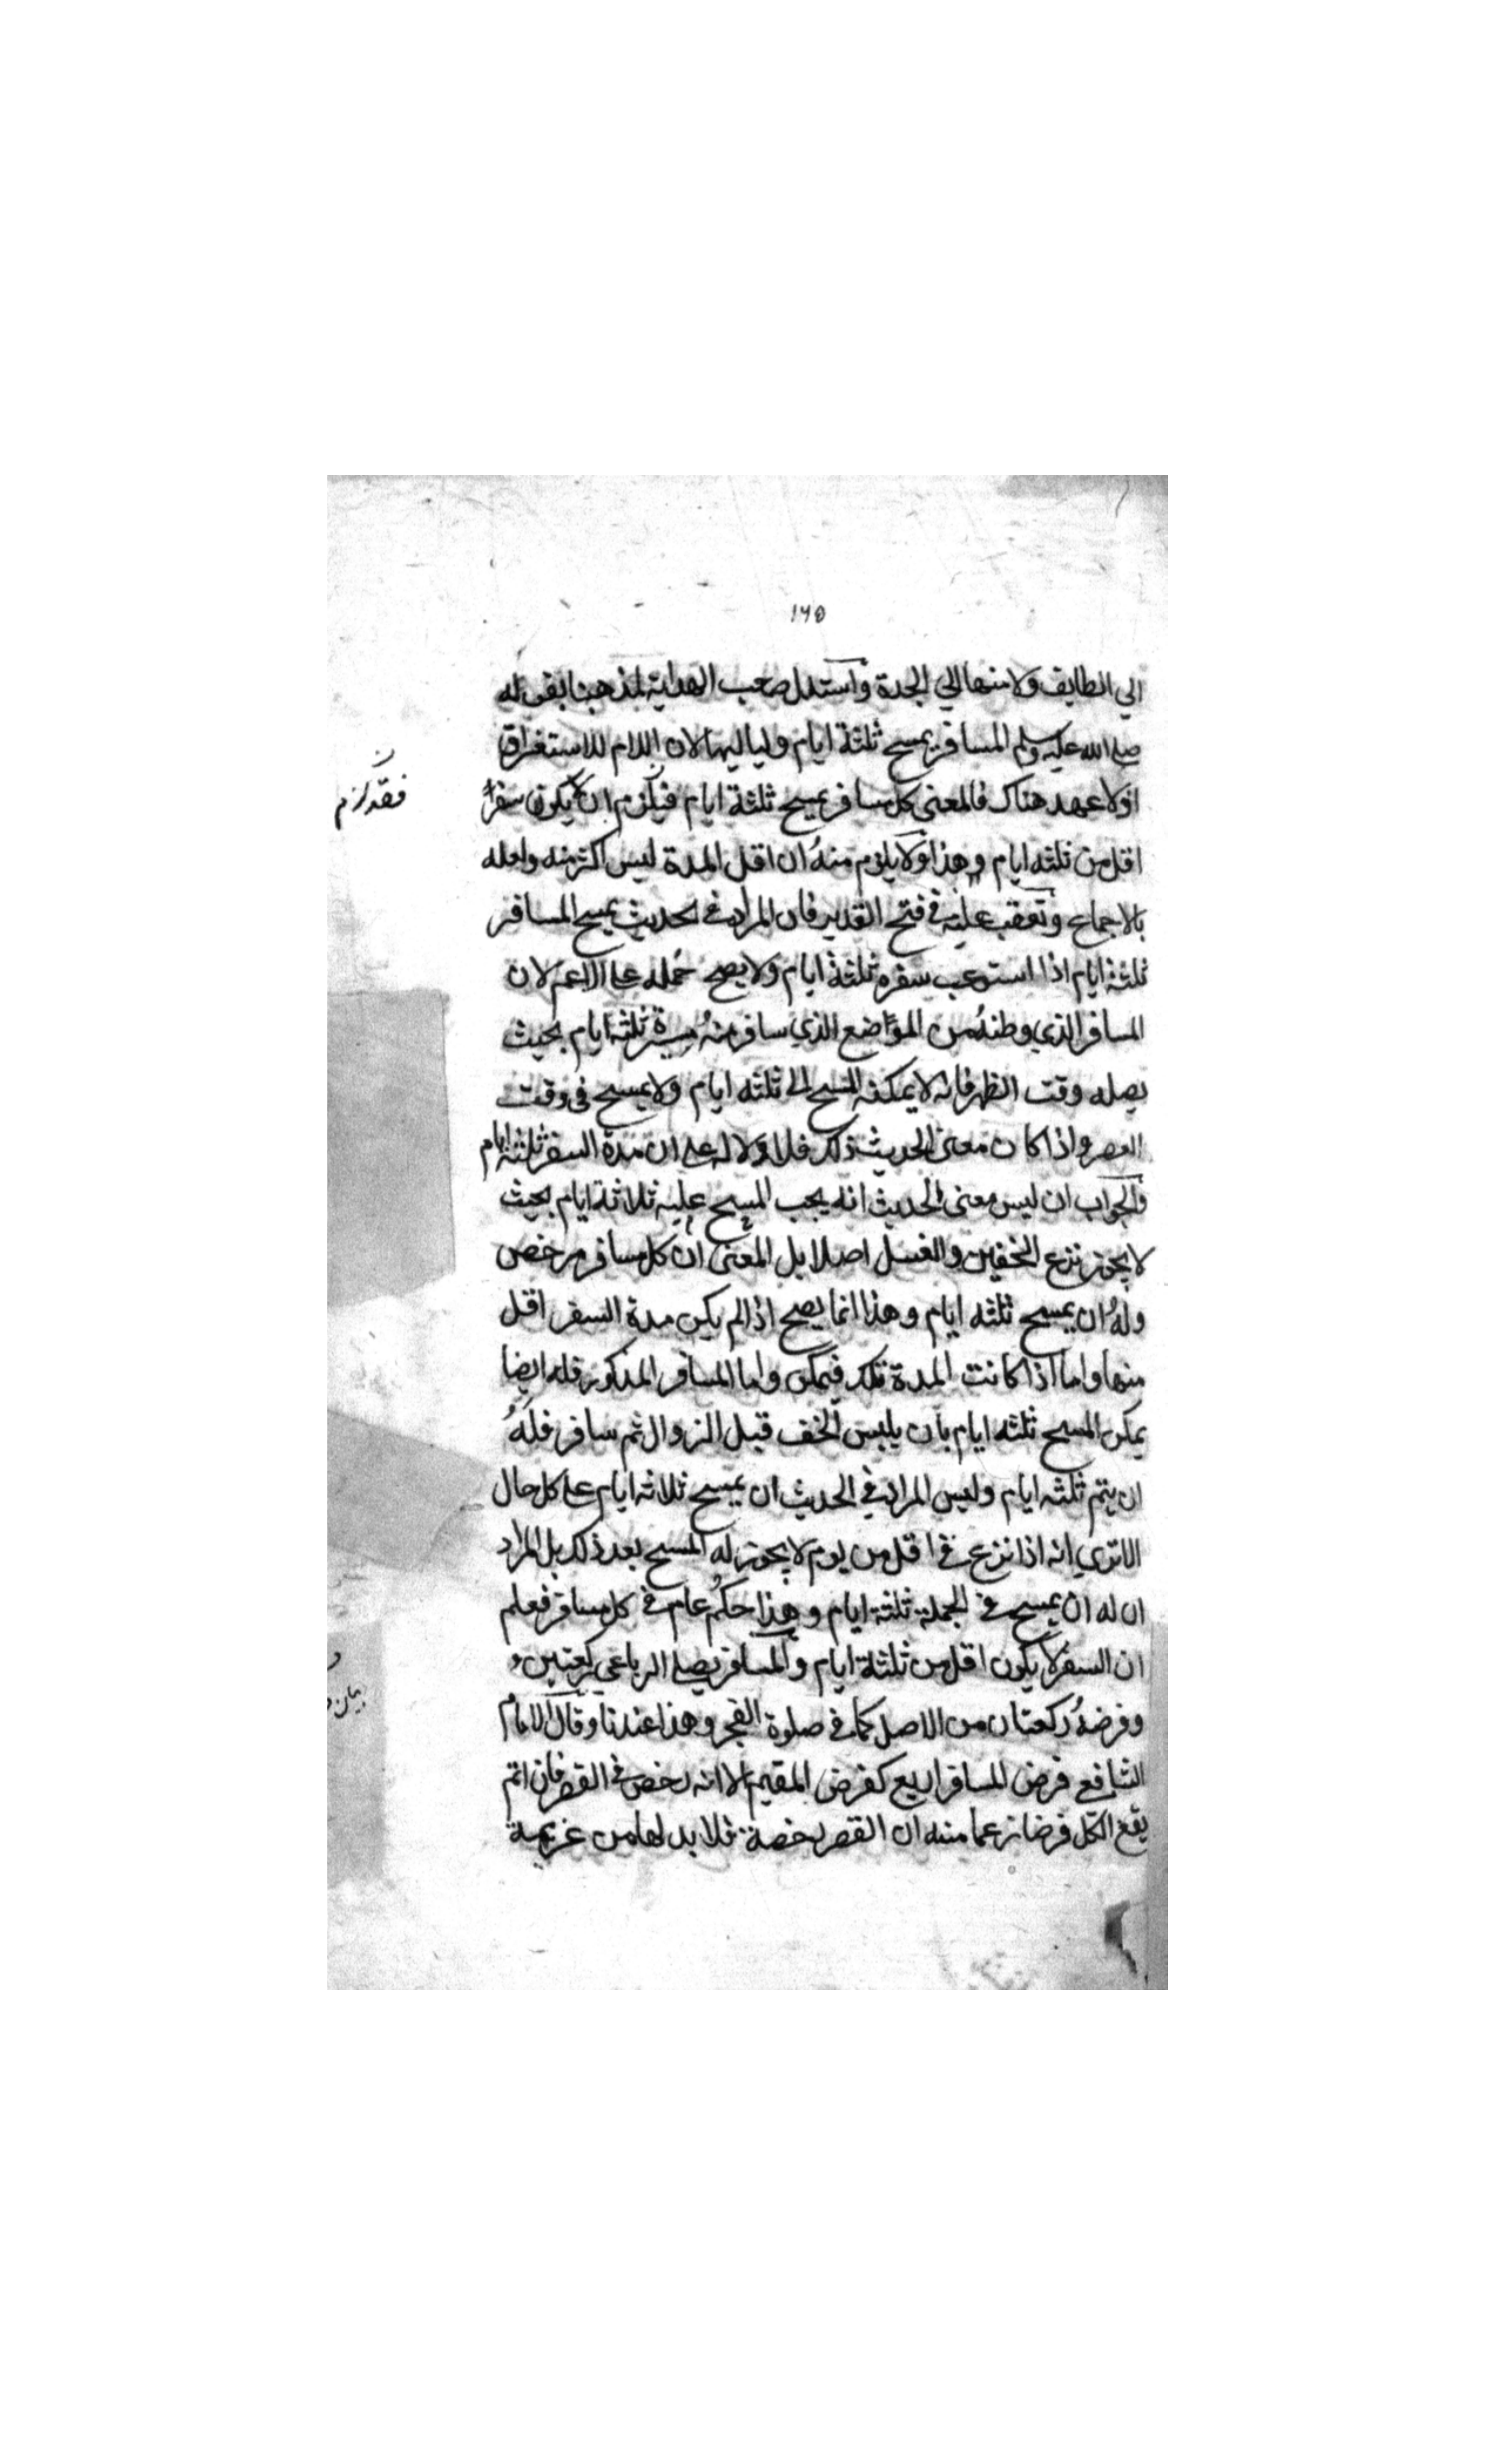 ١٦٥
الي الطايف ولا منها الي الجدة واستدل صاحب الهداية لمذهبنا بقوله
صلى الله عليه وسلم المسافر يمسح ثلثة ايام ولياليها لان اللام للاستغراق
اذ لا عهد هناك فالمعنى كل مسافر يمسح ثلثة ايام فيلزم ان لا يكون سفرا
فقد لزم
اقل من ثلثه ايام وهذا ولا يلزم منه ان اقل المدة ليس اكثر منه ولعله
بالاجماع وتعقب عليه في فتح القدير فان المراد في الحديث يمسح المسافر
ثلثة ايام اذا استوعب سفره ثلثة ايام ولا يصح حمله على الاعم لان
المسافر الذي وطنه من المواضع الذي سافر منه مسيرة ثلثه ايام بحيث
يصله وقت الظهر فانه لا يمكنه المسح الى ثلثه ايام ولا يمسح في وقت
العصر واذا كان معنى الحديث ذلك فلا دلاله على ان مدة السفر ثلثة ايام
والجواب ان ليس معنى الحديث انه يجب المسح عليه ثلاثة ايام بحيث
لا يجوز نزع الخفين والغسل اصلا بل المعنى ان كل مسافر مرخص
وله ان يمسح ثلثه ايام وهذا انما يصح اذا لم يكن مدة السفر اقل
منها واما اذا كانت المدة تلك فيمكن واما المسافر المذكور فله ايضا
يمكن المسح ثلثه ايام بان يلبس الخف قبل الزوال ثم سافر فله
ان يتم ثلثه ايام وليس المراد في الحديث ان يمسح ثلاثه ايام على كل حال
الا تري انه اذا نزع في اقل من يوم لا يجوز له المسح بعد ذلك بل المراد
ان له ان يمسح في الجملة ثلثة ايام وهذا حكم عام في كل مسافر فعلم
ان السفر لا يكون اقل من ثلثة ايام والمسافر يصلي الرباعي ركعتين و
وفرضه ركعتان من الاصل كما في صلوة الفجر وهذا عندنا وقال الامام
الشافعي فرض المسافر اربع كفرض المقيم الا انه رخص في القصر فان اتم
يقع الكل فرضا زعما منه ان القصر رخصة فلا بد لها من عزيمة